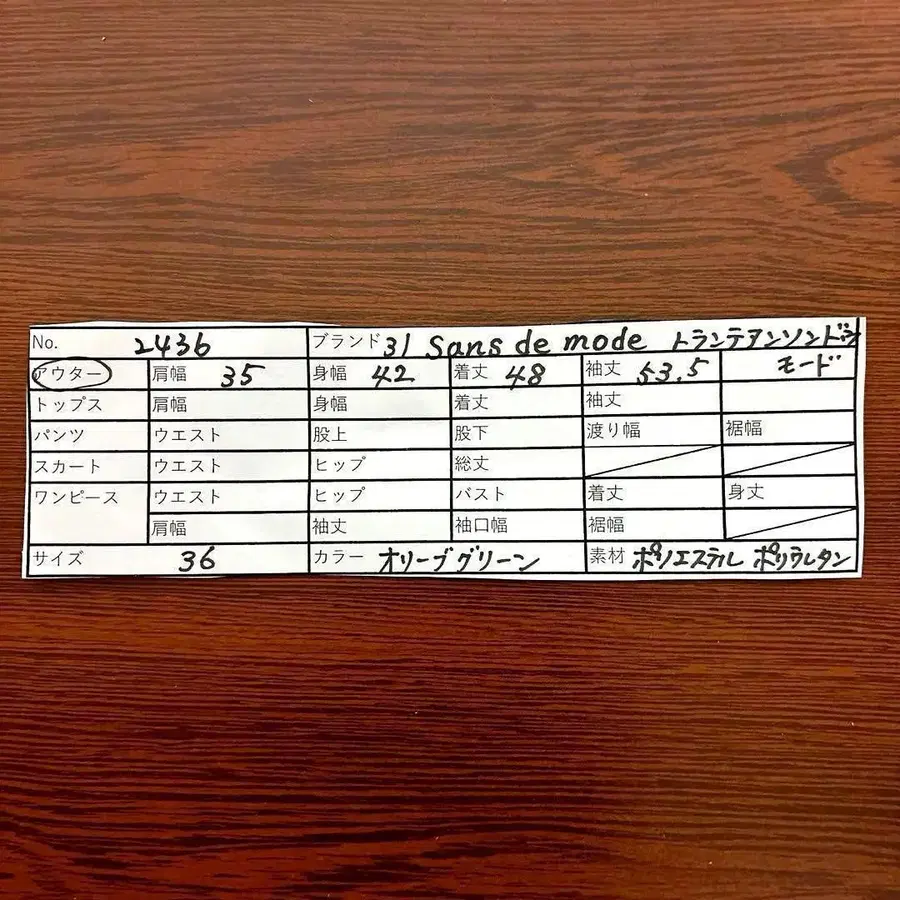 No. 2436 ブランド 31 Sans de mode トランテアンソンドゥ
アウター 肩幅 35 身幅 42 着丈 48 袖丈 53.5 モード
トップス 肩幅 身幅 着丈 袖丈
パンツ ウエスト 股上 股下 渡り幅 裾幅
スカート ウエスト ヒップ 総丈
ワンピース ウエスト ヒップ バスト 着丈 身丈
肩幅 袖丈 袖口幅 裾幅
サイズ 36 カラー オリーブグリーン 素材 ポリエステル ポリウレタン